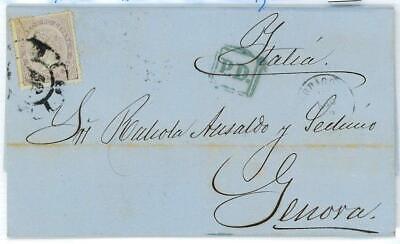 Italia.
P.D.
Sri Rubola Ansaldo y Sedino
Genova.